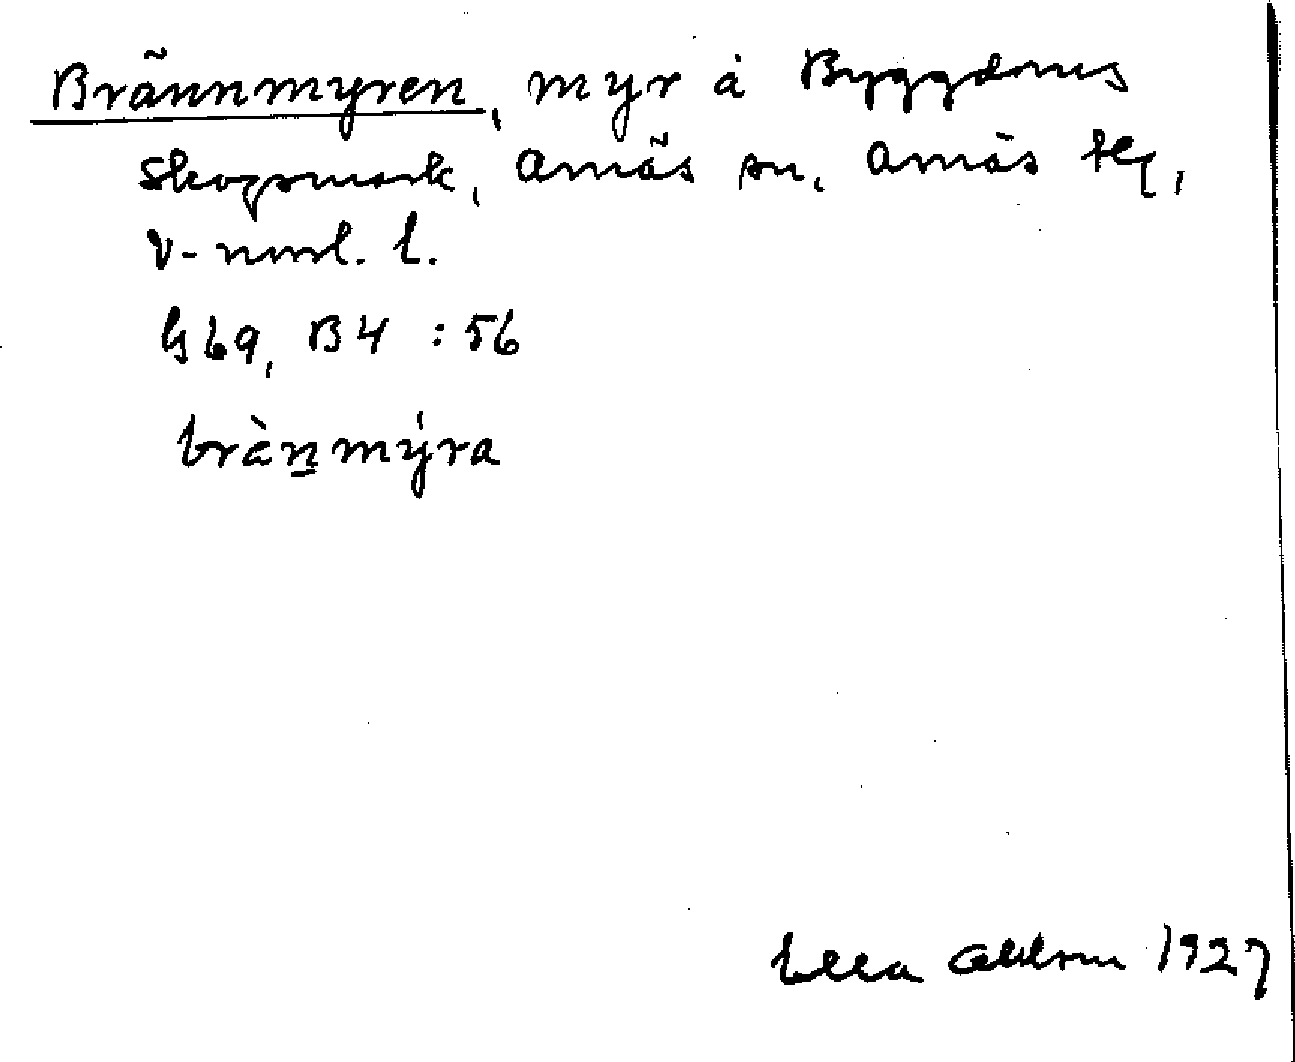 Brännmyren, myr å Byggdoms
skogsmark, Arnäs sn. Arnäs tlg,
V-norrl. l.
G 69, B4 : 56
brànmýra
Ella 1927